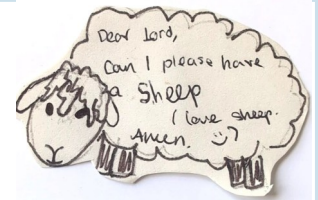 Dear Lord,
Can I please have
a Sheep
I love sheep.
Amen. :)